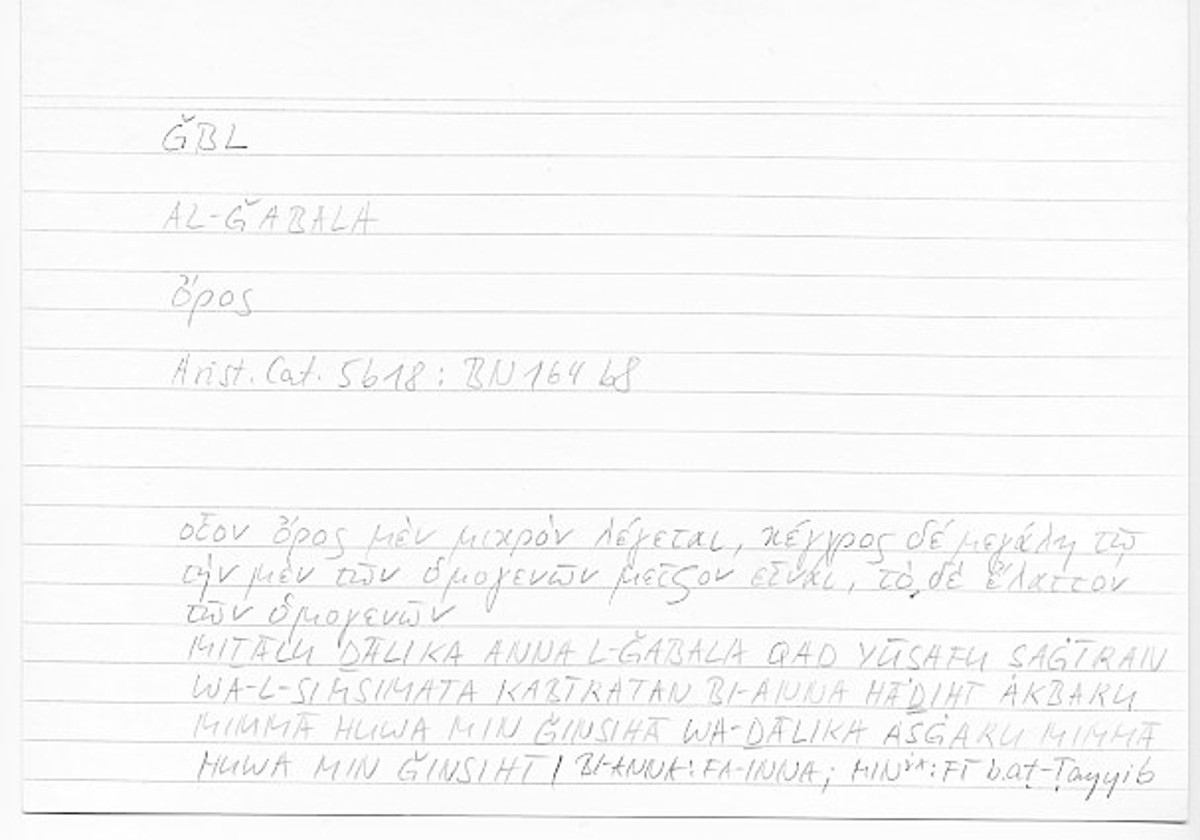 ǦBL
AL-ǦABALA
ὄρος
Arist. Cat. 5b18 : BN 164 b8
οἷον ὄρος μὲν μικρὸν λέγεται, κέγχρος δὲ μεγάλη τῷ
τὴν μὲν τῶν ὁμογενῶν μεῖζον εἶναι, τὸ δὲ ἔλαττον
τῶν ὁμογενῶν
MIṮĀLU ḎĀLIKA ANNA L-ǦABALA QAD YŪṢAFU ṢAĠĪRAN
WA-L-SIMSIMATA KABĪRATAN BI-ANNA HĀḎIHĪ AKBARU
MIMMĀ HUWA MIN ǦINSIHĀ WA-ḎĀLIKA AṢĠARU MIMMĀ
HUWA MIN ǦINSIHĪ / BI-ANNA: FA-INNA; MIN: FĪ b.aṭ-Ṭayyib